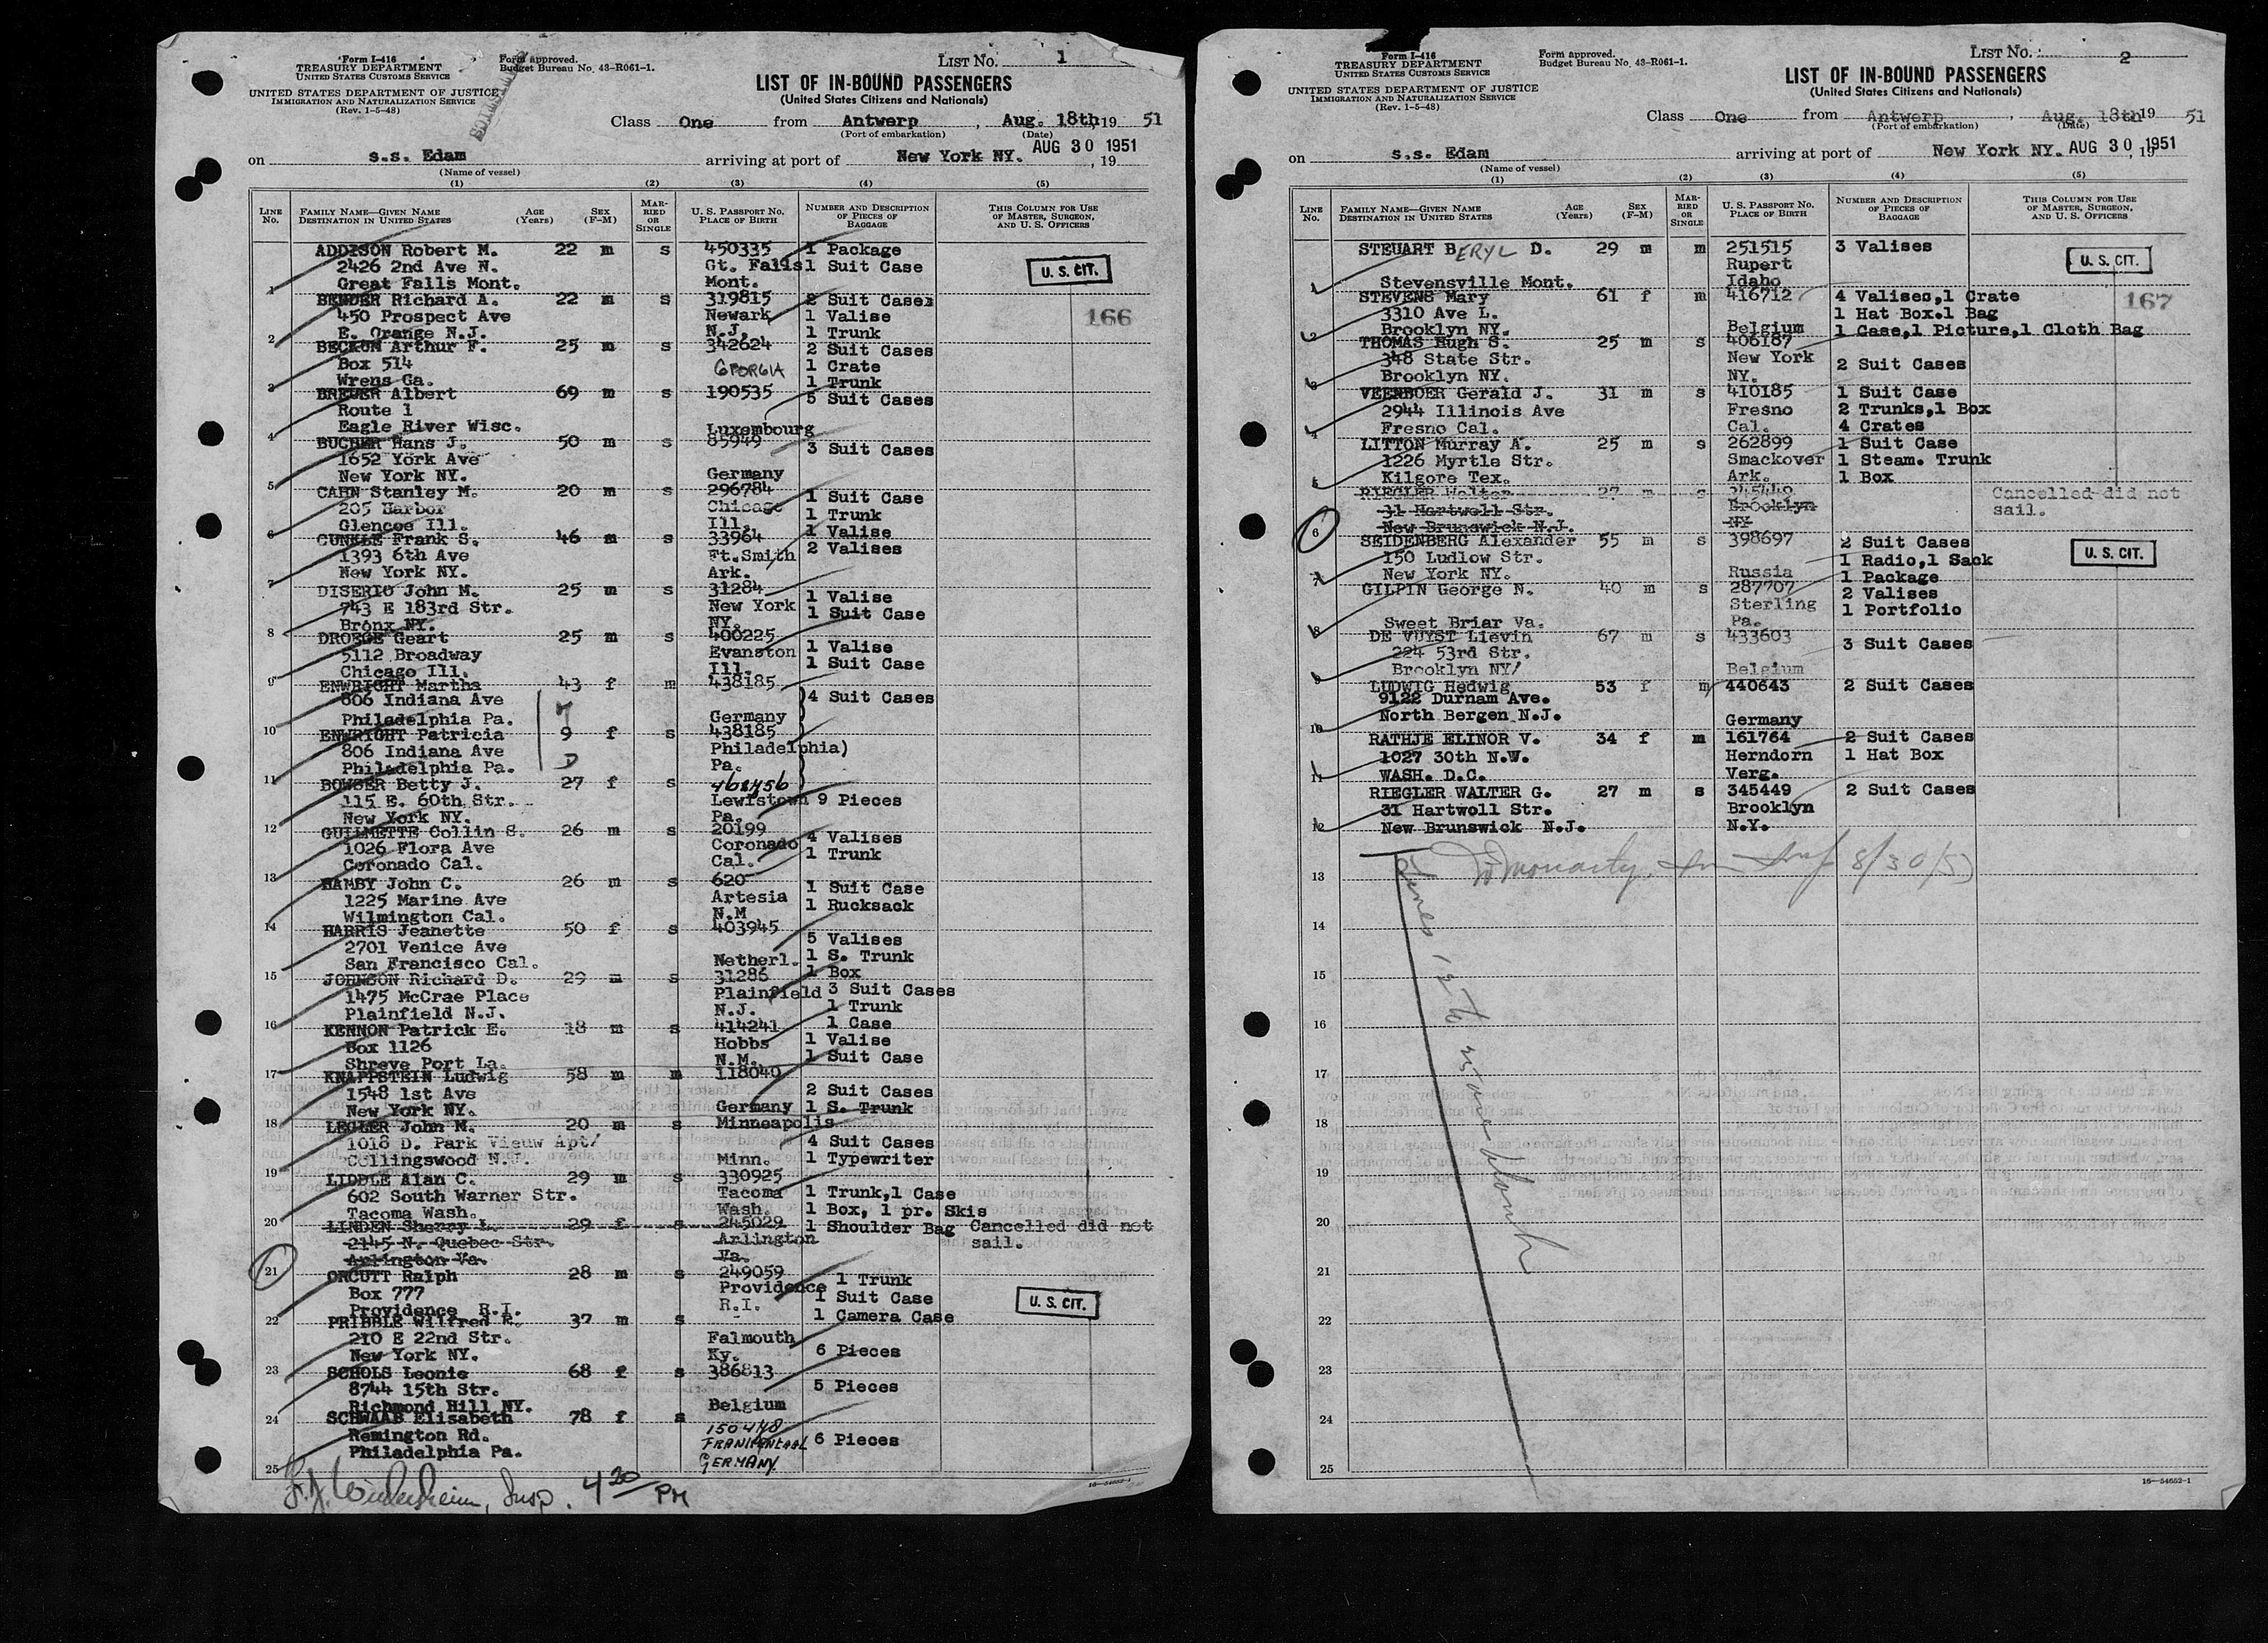 Form I-416
TREASURY DEPARTMENT
UNITED STATES CUSTOMS SERVICE
UNITED STATES DEPARTMENT OF JUSTICE
IMMIGRATION AND NATURALIZATION SERVICE
(Rev. 1-5-48)
Form approved.
Budget Bureau No. 43-R061-1.
LIST No. 1
LIST OF IN-BOUND PASSENGERS
(United States Citizens and Nationals)
Class One from Antwerp, Aug. 18th, 19 51
(Port of embarkation) (Date)
on s.s. Edam arriving at port of New York NY. AUG 30 1951, 19
(Name of vessel)
(1) (2) (3) (4) (5)
LINE No. FAMILY NAME—GIVEN NAME DESTINATION IN UNITED STATES AGE (Years) SEX (F-M) MARRIED OR SINGLE U. S. PASSPORT NO. PLACE OF BIRTH NUMBER AND DESCRIPTION OF PIECES OF BAGGAGE THIS COLUMN FOR USE OF MASTER, SURGEON, AND U. S. OFFICERS
ADDISON Robert M. 22 m s 450335 1 Package
2426 2nd Ave N. Gt. Falls 1 Suit Case U. S. CIT.
1 Great Falls Mont. Mont.
BENDER Richard A. 22 m s 319815 2 Suit Cases
450 Prospect Ave Newark 1 Valise 166
2 E. Orange N.J. N.J. 1 Trunk
BECKUM Arthur F. 25 m s 342624 2 Suit Cases
Box 514 GEORGIA 1 Crate
3 Wrens Ga. 1 Trunk
BREUER Albert 69 m s 190535 5 Suit Cases
Route 1
4 Eagle River Wisc. Luxembourg
BUCHER Hans J. 50 m s 85949 3 Suit Cases
1652 York Ave
5 New York NY. Germany
CAHN Stanley M. 20 m s 296784 1 Suit Case
205 Harbor Chicago 1 Trunk
6 Glencoe Ill. Ill. 1 Valise
CUNKLE Frank S. 46 m s 33964 2 Valises
1393 6th Ave Ft.Smith
7 New York NY. Ark.
DISERIO John M. 25 m s 31284 1 Valise
743 E 183rd Str. New York 1 Suit Case
8 Bronx NY. NY.
DROEGE Geart 25 m s 400225 1 Valise
5112 Broadway Evanston 1 Suit Case
9 Chicago Ill. Ill.
ENWRIGHT Martha 43 f m 438185 4 Suit Cases
806 Indiana Ave
10 Philadelphia Pa. Germany
ENWRIGHT Patricia 9 f s 438185
806 Indiana Ave Philadelphia)
11 Philadelphia Pa. D Pa.
BOWSER Betty J. 27 f s 468456
115 E. 60th Str. Lewistown 9 Pieces
12 New York NY. Pa.
GUILMETTE Collin S. 26 m s 20199 4 Valises
1026 Flora Ave Coronado 1 Trunk
13 Coronado Cal. Cal.
HAMBY John C. 26 m s 620 1 Suit Case
1225 Marine Ave Artesia 1 Rucksack
14 Wilmington Cal. N.M
HARRIS Jeanette 50 f s 403945 5 Valises
2701 Venice Ave 1 S. Trunk
15 San Francisco Cal. Netherl. 1 Box
JOHNSON Richard D. 29 m s 31286 3 Suit Cases
1475 McCrae Place Plainfield 1 Trunk
16 Plainfield N.J. N.J. 1 Case
KENNON Patrick E. 18 m s 414241 1 Valise
Box 1126 Hobbs 1 Suit Case
17 Shreve Port La. N.M.
KNAPPSTEIN Ludwig 58 m m 118040 2 Suit Cases
1548 1st Ave
18 New York NY. Germany 1 S. Trunk
LEGLER John M. 20 m s Minneapolis 4 Suit Cases
1018 D. Park Vieuw Apt/ 1 Typewriter
19 Collingswood N.J. Minn.
LIDDLE Alan C. 29 m s 330925 1 Trunk,1 Case
602 South Warner Str. Tacoma 1 Box, 1 pr. Skis
20 Tacoma Wash. Wash. 1 Shoulder Bag
LINDEN Sherry L. 29 f s 245029 Cancelled did not
2145 N. Quebec Str. Arlington sail.
21 Arlington Va. Va.
ORCUTT Ralph 28 m s 249059 1 Trunk
Box 777 Providence 1 Suit Case U. S. CIT.
22 Providence R.I. R.I. 1 Camera Case
PRIBBLE Wilfred R. 37 m s
210 E 22nd Str. Falmouth 6 Pieces
23 New York NY. Ky.
SCHOLS Leonie 68 f s 386813 5 Pieces
8744 15th Str.
24 Richmond Hill NY. Belgium
SCHWAAB Elisabeth 78 f s 150448 6 Pieces
Remington Rd. FRANKENTAAL
25 Philadelphia Pa. GERMANY
Insp. 4 20 PM
16—54652-1
Form I-416
TREASURY DEPARTMENT
UNITED STATES CUSTOMS SERVICE
UNITED STATES DEPARTMENT OF JUSTICE
IMMIGRATION AND NATURALIZATION SERVICE
(Rev. 1-5-48)
Form approved.
Budget Bureau No. 43-R061-1.
LIST No. 2
LIST OF IN-BOUND PASSENGERS
(United States Citizens and Nationals)
Class One from Antwerp, Aug. 18th 19 51
(Port of embarkation) (Date)
on s.s. Edam arriving at port of New York NY. AUG 30 1951, 19
(Name of vessel)
(1) (2) (3) (4) (5)
LINE No. FAMILY NAME—GIVEN NAME DESTINATION IN UNITED STATES AGE (Years) SEX (F-M) MARRIED OR SINGLE U. S. PASSPORT NO. PLACE OF BIRTH NUMBER AND DESCRIPTION OF PIECES OF BAGGAGE THIS COLUMN FOR USE OF MASTER, SURGEON, AND U. S. OFFICERS
STEUART BERYL D. 29 m m 251515 3 Valises
Rupert U. S. CIT.
1 Stevensville Mont. Idaho
STEVENS Mary 61 f m 416712 4 Valises,1 Crate 167
3310 Ave L. 1 Hat Box.1 Bag
2 Brooklyn NY. Belgium 1 Case,1 Picture,1 Cloth Bag
THOMAS Hugh S. 25 m s 406187
348 State Str. New York 2 Suit Cases
3 Brooklyn NY. NY.
VEENBOER Gerald J. 31 m s 410185 1 Suit Case
2944 Illinois Ave Fresno 2 Trunks,1 Box
4 Fresno Cal. Cal. 4 Crates
LITTON Murray A. 25 m s 262899 1 Suit Case
1226 Myrtle Str. Smackover 1 Steam. Trunk
5 Kilgore Tex. Ark. 1 Box
RIEGLER Walter 27 m s 345449 Cancelled did not
31 Hartwell Str. Brooklyn sail.
6 New Brunswick N.J. NY
SEIDENBERG Alexander 55 m s 398697 2 Suit Cases
150 Ludlow Str. 1 Radio,1 Sack U. S. CIT.
7 New York NY. Russia 1 Package
GILPIN George N. 40 m s 287707 2 Valises
Sterling 1 Portfolio
8 Sweet Briar Va. Pa.
DE VUYST Lievin 67 m s 433603 3 Suit Cases
224 53rd Str.
9 Brooklyn NY/ Belgium
LUDWIG Hedwig 53 f m 440643 2 Suit Cases
9122 Durnam Ave.
10 North Bergen N.J. Germany
RATHJE ELINOR V. 34 f m 161764 2 Suit Cases
1027 30th N.W. Herndorn 1 Hat Box
11 WASH. D.C. Verg.
RIEGLER WALTER G. 27 m s 345449 2 Suit Cases
31 Hartwoll Str. Brooklyn
12 New Brunswick N.J. N.Y.
8/30/51
13
14
15
16
17
18
19
20
21
22
23
24
25
Lines 13 to 25 are blank
16—54652-1